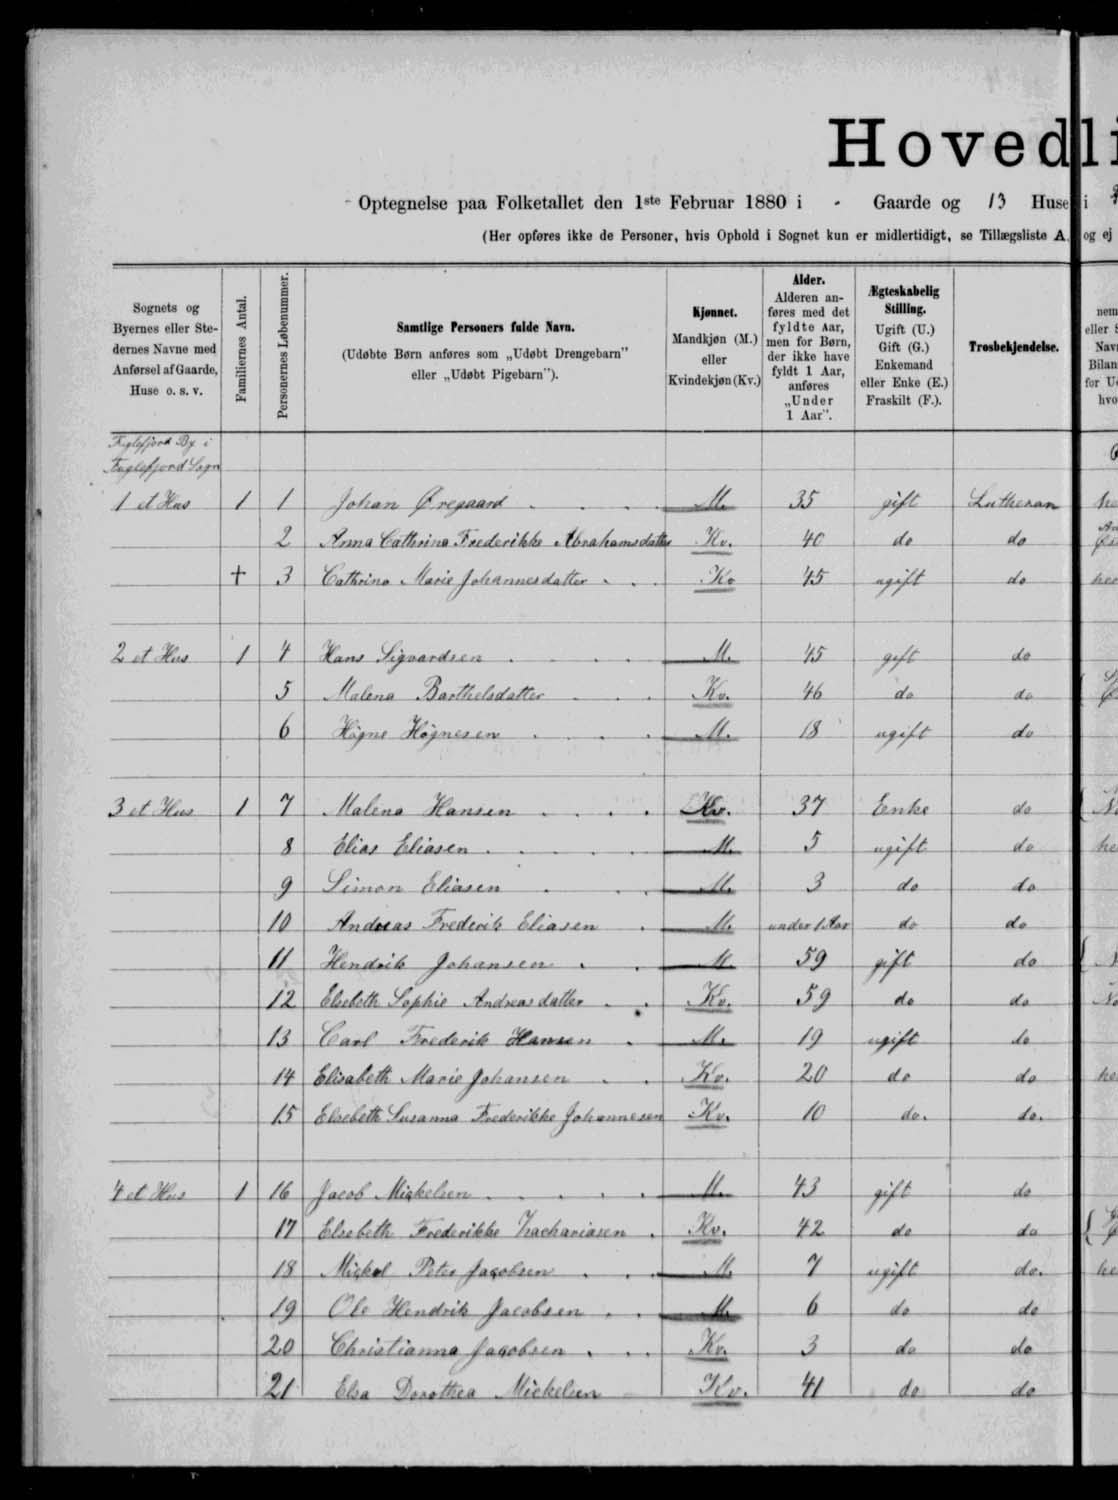 Hovedli
Optegnelse paa Folketallet den 1ste Februar 1880 i - Gaarde og 13 Huse i
(Her opføres ikke de Personer, hvis Ophold i Sognet kun er midlertidigt, se Tillægsliste A, og ej
Sognets og Byernes eller Stedernes Navne med Anførsel af Gaarde, Huse o. s. v.
Familiernes Antal.
Personernes Løbenummer.
Samtlige Personers fulde Navn.
(Udøbte Børn anføres som „Udøbt Drengebarn"
eller „Udøbt Pigebarn").
Kjønnet.
Mandkjøn (M.)
eller
Kvindekjøn (Kv.)
Alder.
Alderen an-
føres med det
fyldte Aar,
men for Børn,
der ikke have
fyldt 1 Aar,
anføres
„Under
1 Aar".
Ægteskabelig
Stilling.
Ugift (U.)
Gift (G.)
Enkemand
eller Enke (E.)
Fraskilt (F.).
Trosbekjendelse.
Fuglefjord By i
Fuglefjord Sogn
1 et Hus 1 1 Johan Øregaard M. 35 gift Lutheran
2 Anna Cathrina Frederikke Abrahamsdatter Kv. 40 do do
+ 3 Cathrina Marie Johannesdatter Kv 45 ugift do
2 et Hus 1 4 Hans Sigvardsen M. 45 gift do
5 Malena Barthelsdatter Kv. 46 do do
6 Högne Högnesen M. 18 ugift do
3 et Hus 1 7 Malena Hansen Kv. 37 Enke do
8 Elias Eliasen M. 5 ugift do
9 Simon Eliasen M. 3 do do
10 Andreas Frederik Eliasen M. under 1 Aar do do
11 Hendrik Johansen M. 59 gift do
12 Elsebeth Sophie Andreasdatter Kv. 59 do do
13 Carl Frederik Hansen M. 19 ugift do
14 Elisabeth Marie Johansen Kv. 20 do do
15 Elsebeth Susanna Frederikke Johannesen Kv. 10 do. do.
4 et Hus 1 16 Jacob Mickelsen M. 43 gift do
17 Elsebeth Frederikke Zachariasen Kv. 42 do do
18 Mickel Peter Jacobsen M. 7 ugift do.
19 Ole Hendrik Jacobsen M. 6 do do
20 Christianna Jacobsen Kv. 3 do do
21 Elsa Dorothea Mickelsen Kv. 41 do do